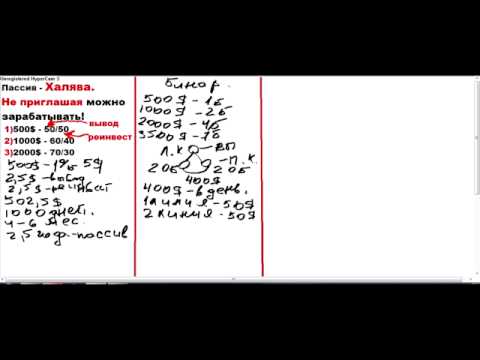 Unregistered HyperCam 2
Пассия - Халява.
Не приглашая можно
зарабатывать!
вывод
1)500$ - 50/50
реинвест
2)1000$ - 60/40
3)2000$ - 70/30
500$ - 1% 5$
2,5$ - вывод
2,5$ - реинвест
502,5$
1000 дней.
4-6 мес.
2,5 год. - пассив
Бинар.
500$ - 1б
1000$ - 2б
2000$ - 4б
3500$ - 7б
Л.К
ВЫ
П.К.
20б
20б
400$
400$ - в день.
1 линия - 50$
2 линия - 50$